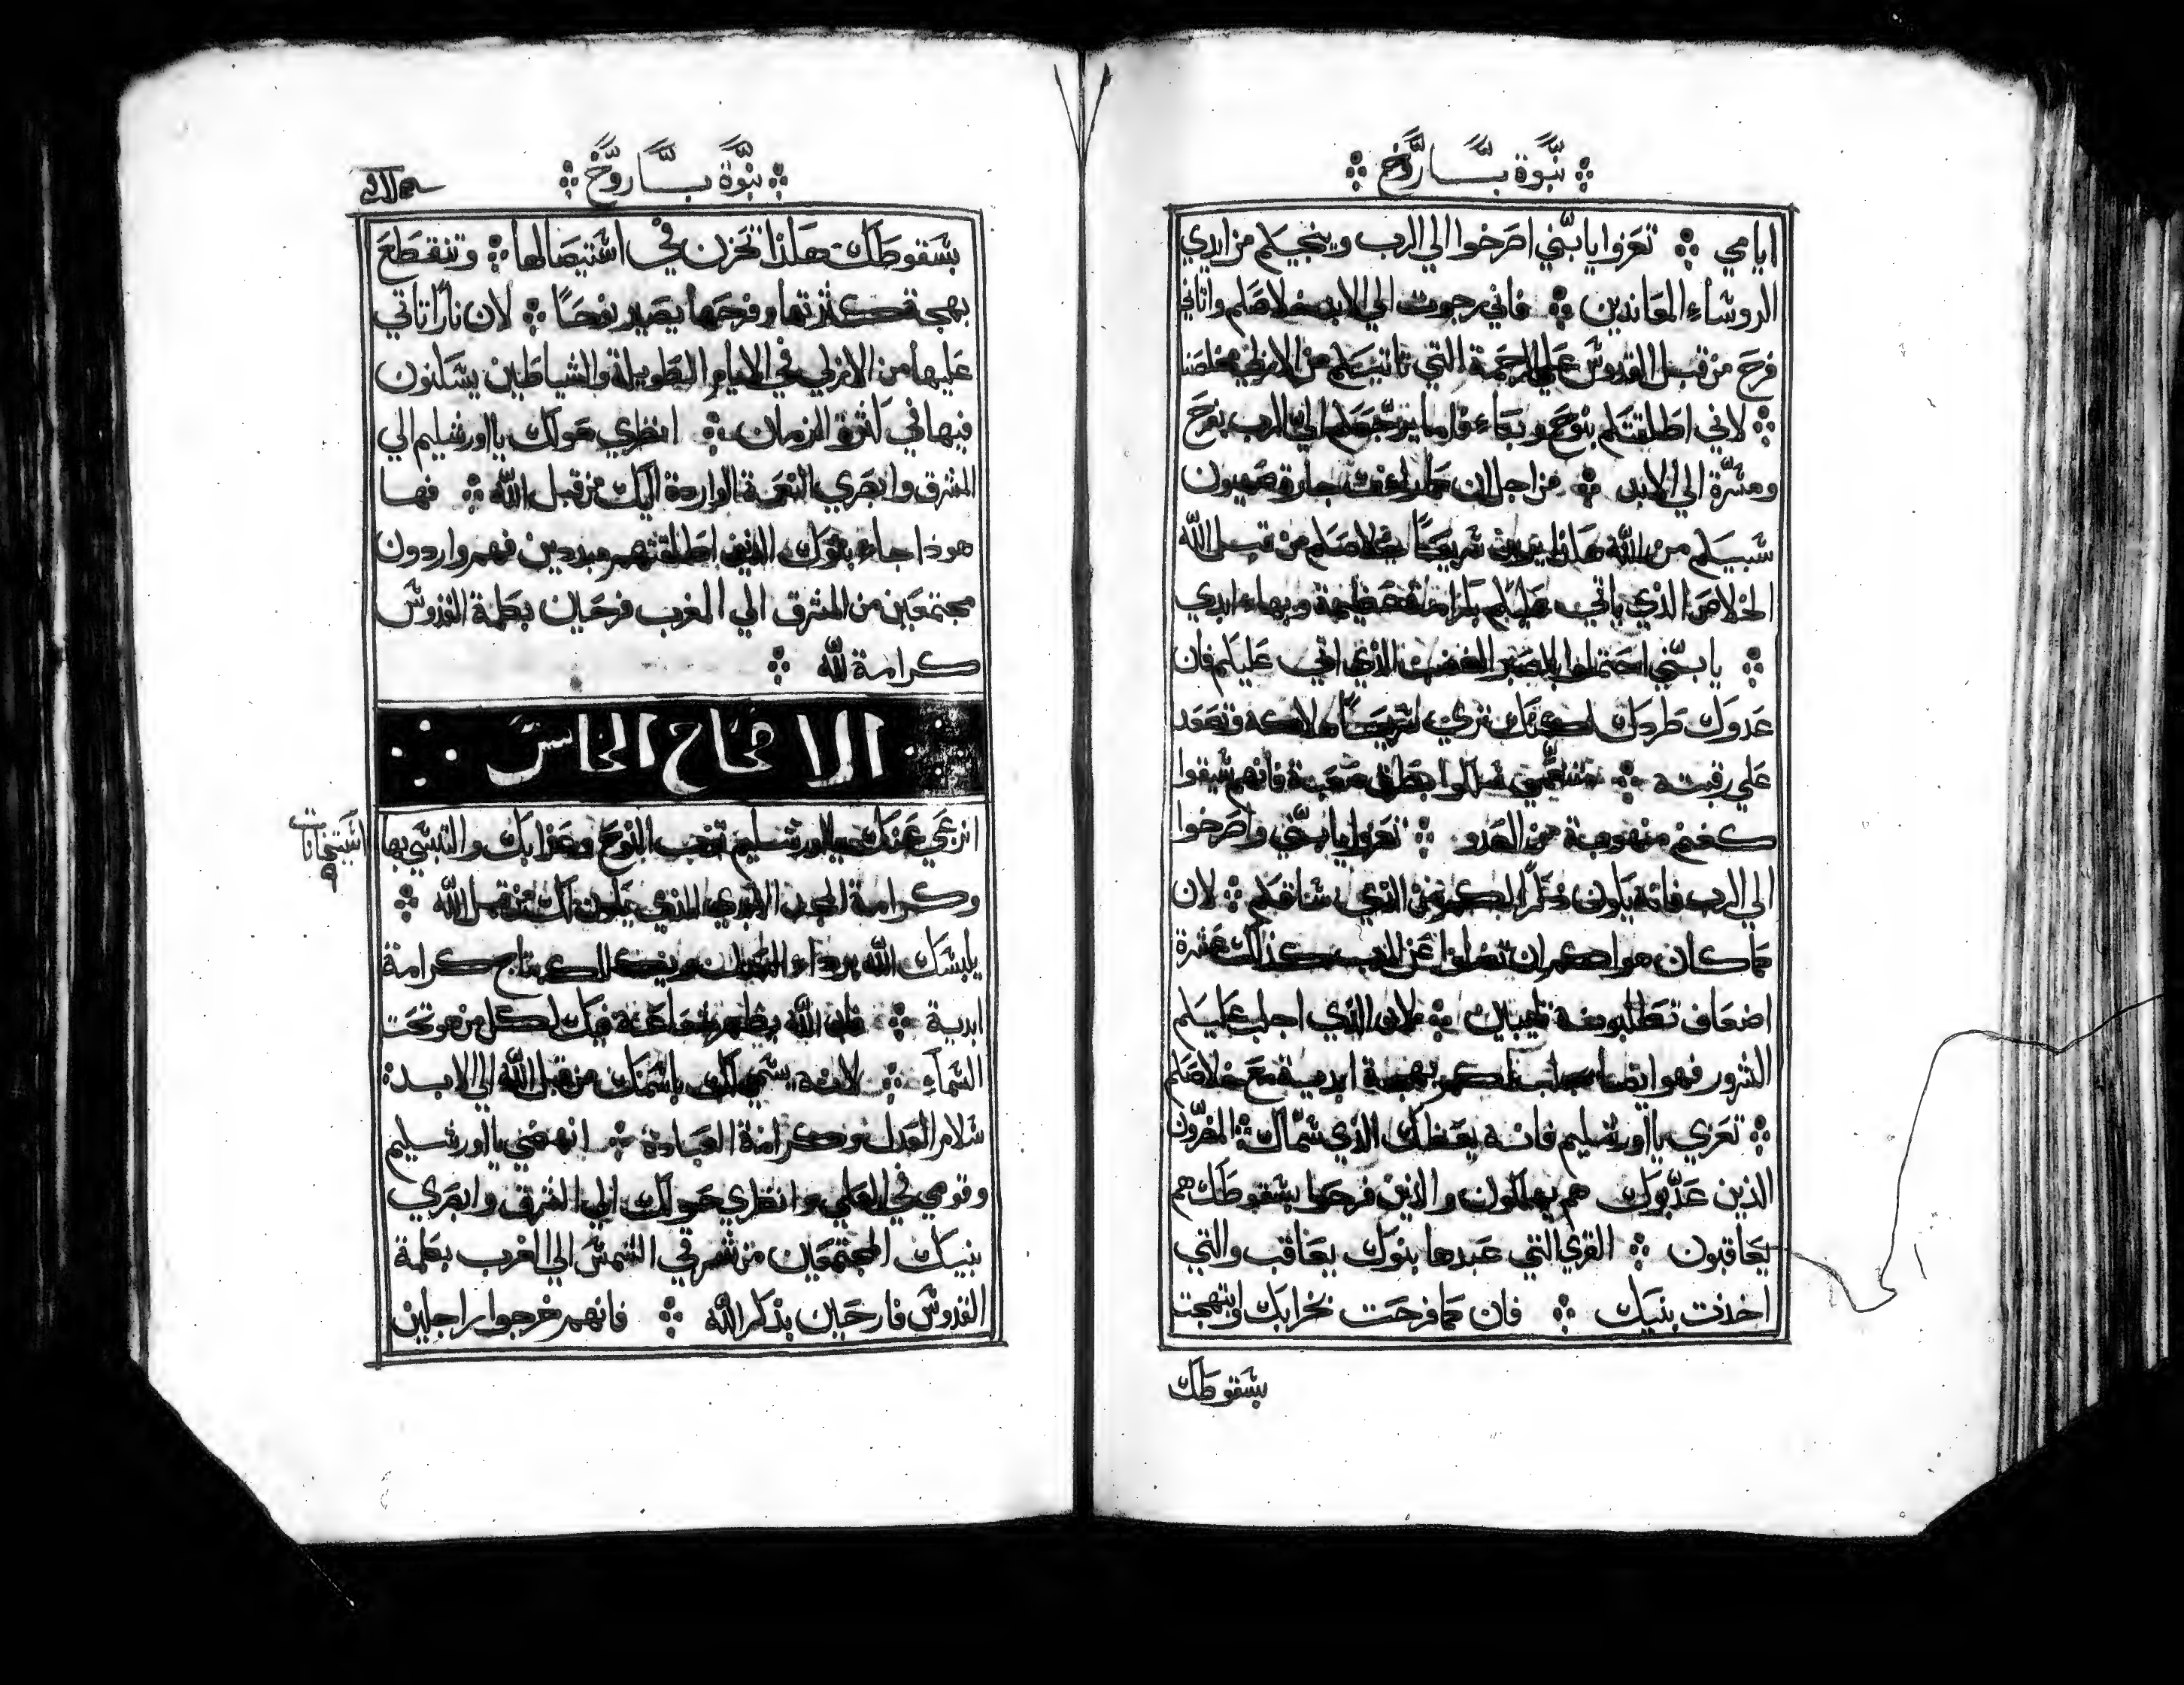 نبوة باروخ
ايامي ؞ تعزوا يا بني اصرخوا الي الرب وينجيكم من ايدي
الروساء المعاندين ؞ فاني رجوت الي الابد خلاصكم واتاني
فرح من قبل القدوس علي الرحمة التي تاتيكم من الازلي مخلصنا
؞ لاني اطلقتكم بنوح وبكاء واما يرجعكم الي الرب بفرح
ومسرة الي الابد ؞ من اجل ان كما رات جارة صهيون
سبيكم من الله هكذا يرون سريعًا خلاصكم من قبل الله
الخلاص الذي ياتي عليكم بكرامة عظيمة وبهاء ابدي
؞ يا بني احتملوا بالصبر الغضب الذي اتي عليكم فان
عدوك طردك لكنك تري سريعًا هلاكه وتصعد
علي رقبته ؞ متنعمي سلكوا طرق صعبة فانهم سيقوا
كغنم منهوبة من العدو ؞ تعزوا يا بني واصرخوا
الي الرب فانه يكون ذكرًا لكم من الذي ساقكم ؞ لان
كما كان هواكم ان تضلوا عن الرب كذلك عشرة
اضعاف تطلبونه تايبين ؞ لان الذي اجلب عليكم
الشرور فهو ايضا يجلب لكم بهجة ابدية مع خلاصكم
؞ تعزي يا اورشليم فانه يعظك الذي سماك ؞ المضرون
الذين عذبوك هم يهلكون والذين فرحوا بسقوطك هم
يعاقبون ؞ القري التي عبدها بنوك يعاقب والتي
اخذت بنيك ؞ فان كما فرحت بخرابك وابتهجت
بسقوطك
نبوة باروخ
بسقوطك هكذا تحزن في استيصالها ؞ وتنقطع
بهجة كثرتها وفرحها يصير نوحًا ؞ لان نارًا تاتي
عليها من الازلي في الايام الطويلة والشياطين يسكنون
فيها في كثرة الزمان ؞ انظري حولك يا اورشليم الي
المشرق وابصري النعمة الواردة اليك من قبل الله ؞ فها
هوذا جاء بنوك الذين اطلقتهم مبددين فهم واردون
مجتمعين من المشرق الي المغرب فرحين بكلمة القدوس
كرامة لله ؞
الاصحاح الخامس
انزعي عنك يا اورشليم ثوب النوح وعذابك والتبسي بها
وكرامة المجد الابدي الذي يكون لك من قبل الله ؞
يلبسك الله برداء العدل ويكللك بتاج كرامة
ابدية ؞ فان الله يظهر شعاعه فيك لكل من هو تحت
السماء ؞ لانه يسمي لك باسمك من قبل الله الي الابد
سلام العدل وكرامة العبادة ؞ انهضي يا اورشليم
وقومي في العلي وانظري حولك الي الشرق وابصري
بنيك المجتمعين من شرقي الشمس الي الغرب بكلمة
القدوس فارحين بذكر الله ؞ فانهم خرجوا راجلين